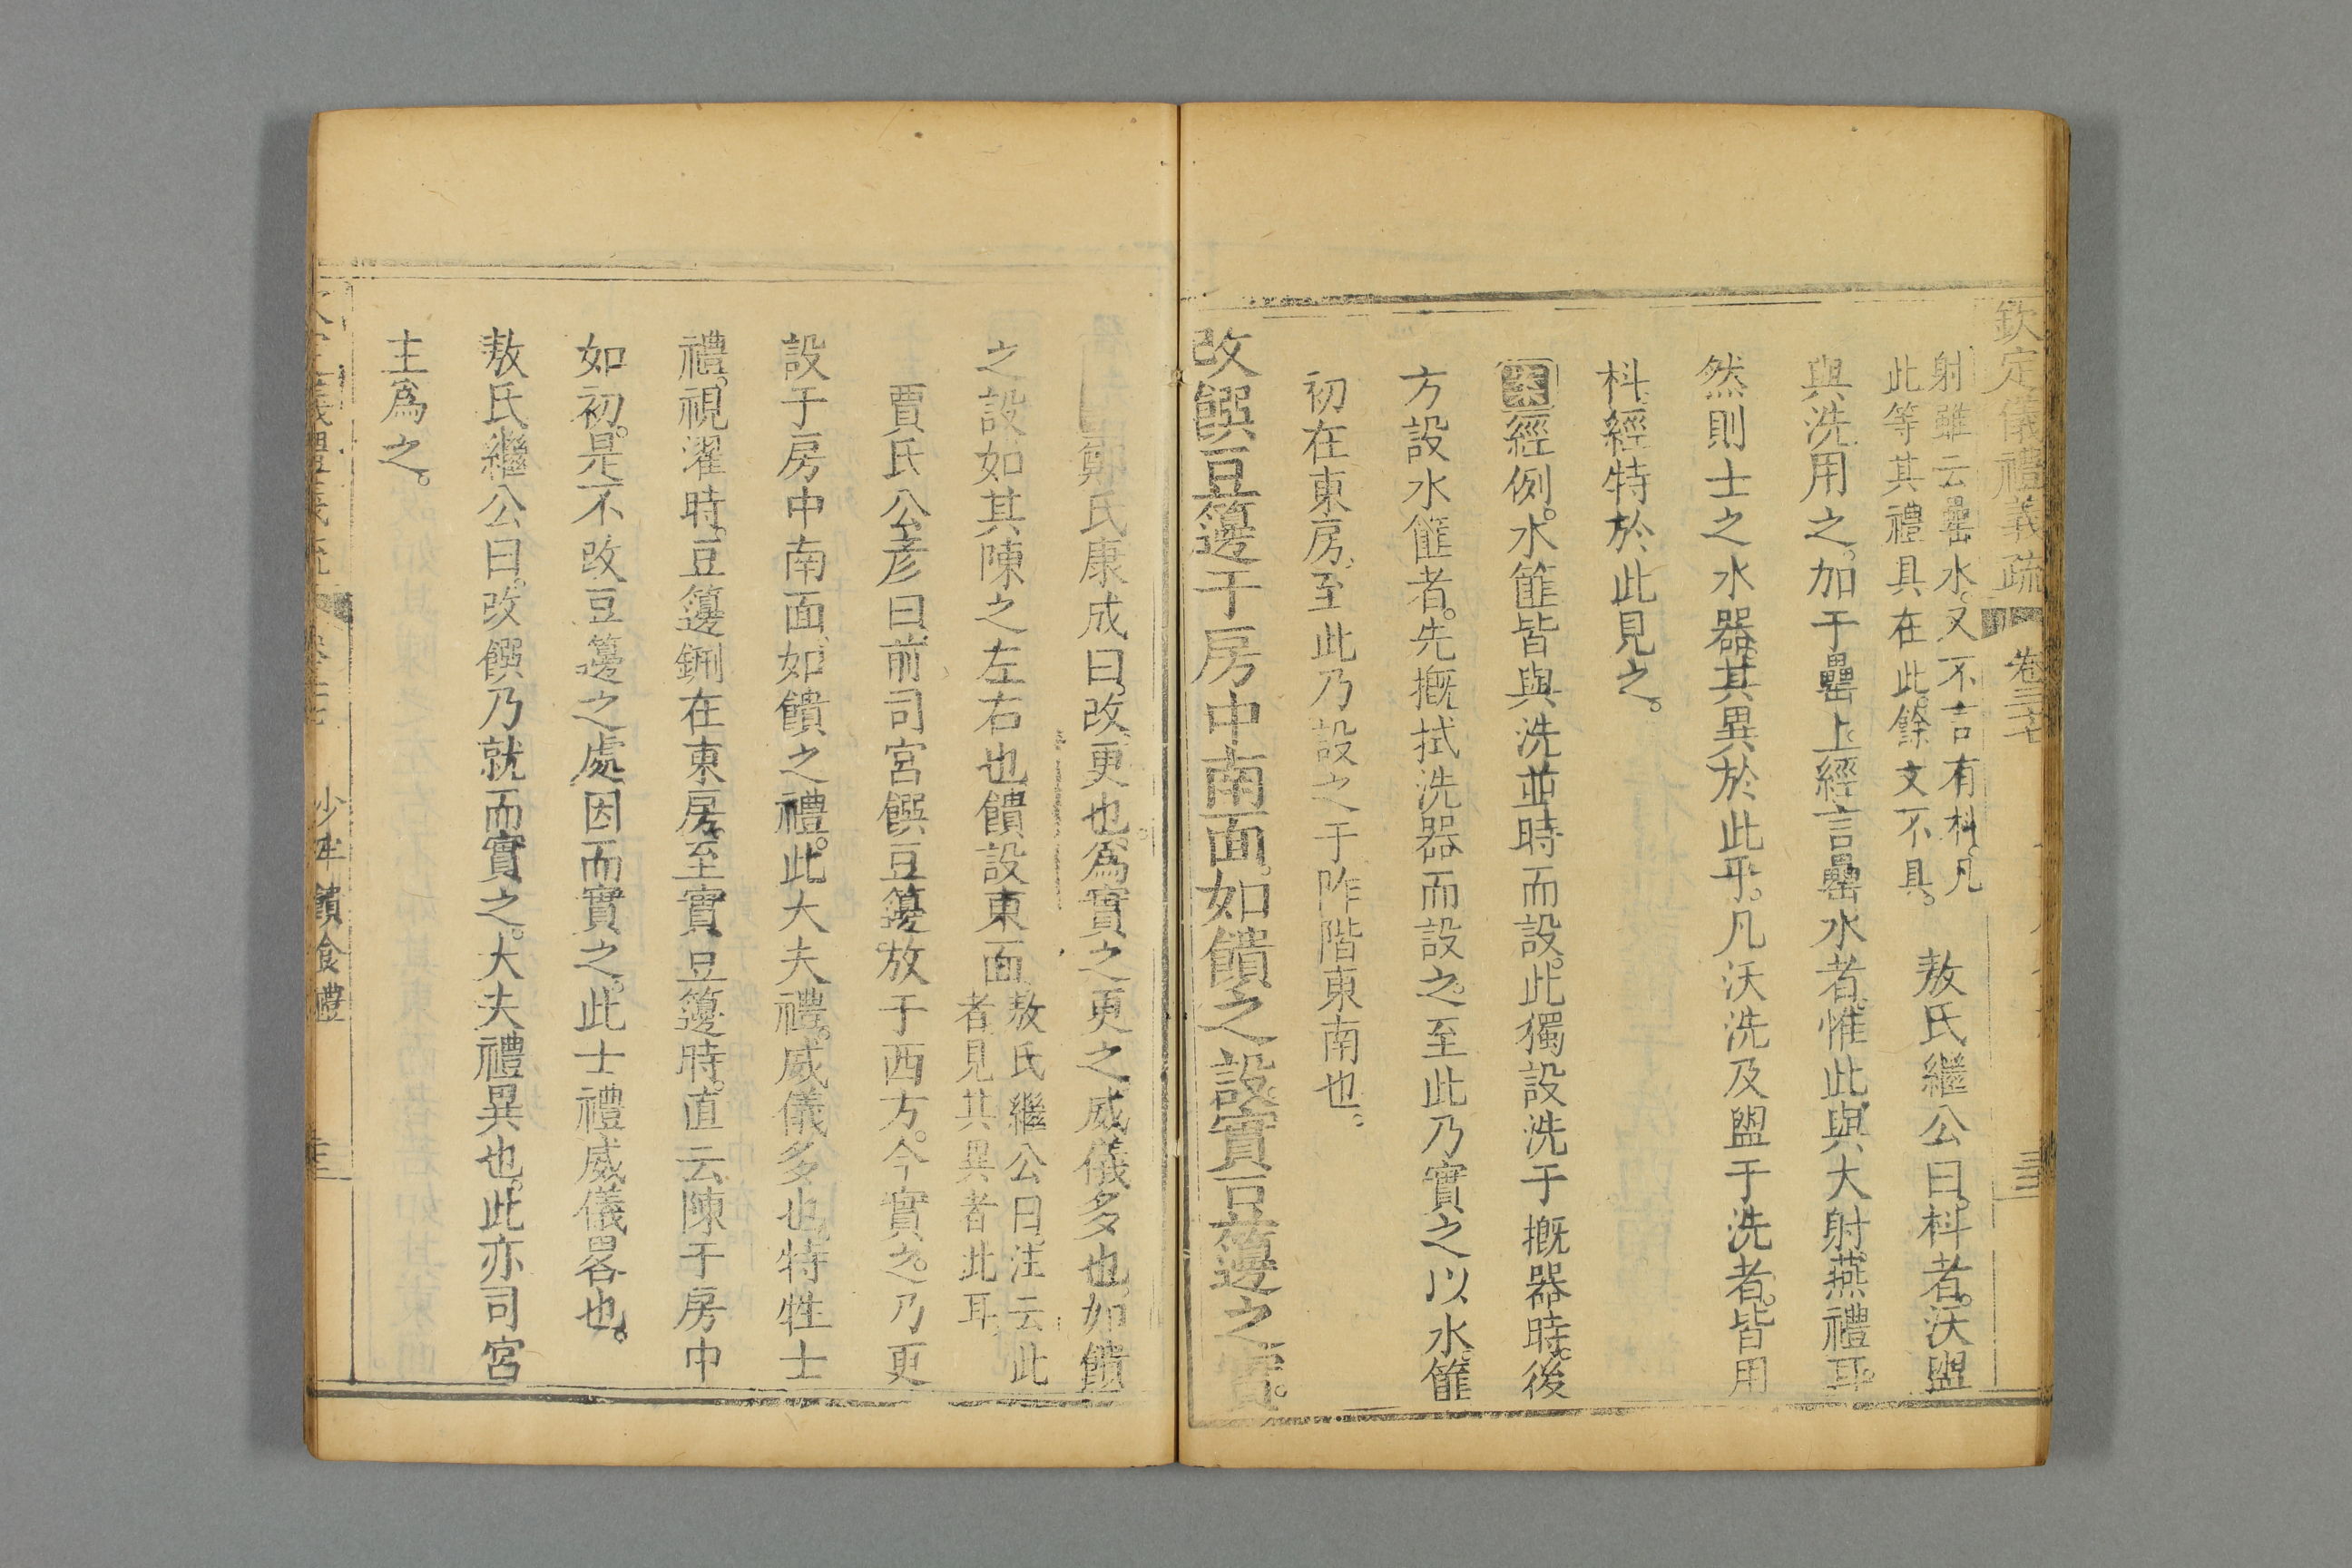 欽定儀禮義疏 卷三七
射雖云罍水。又不言有枓。凡
此等其禮具在此。餘文不具。
敖氏繼公曰。枓者。沃盥
與洗用之。加于罍上。經言罍水者。惟此與大射燕禮耳。
然則士之水器。其異於此乎。凡沃洗及盥于洗者。皆用
枓。經特於此見之。
案經例。水篚皆與洗並時而設。此獨設洗于摡器時。後
方設水篚者。先摡拭洗器而設之。至此乃實之以水。篚
初在東房。至此乃設之于阼階東南也。
改饌豆籩于房中南面。如饋之設實豆籩之實。
鄭氏康成曰。改更也。為實之更之。威儀多也。如饋
之設如其陳之左右也饋設東面
敖氏繼公曰。注云此
者見其異者此耳
賈氏公彥曰。前司宮饌豆籩。放于西方。今實之。乃更
設于房中南面。如饋之禮。此大夫禮。威儀多也。特牲士
禮。視濯時。豆籩鉶在東房。至實豆籩時。直云陳于房中
如初。是不改豆籩之處因而實之。此士禮威儀畧也。
敖氏繼公曰。改饌乃就而實之。大夫禮異也。此亦司宮
主爲之。
少牢饋食禮